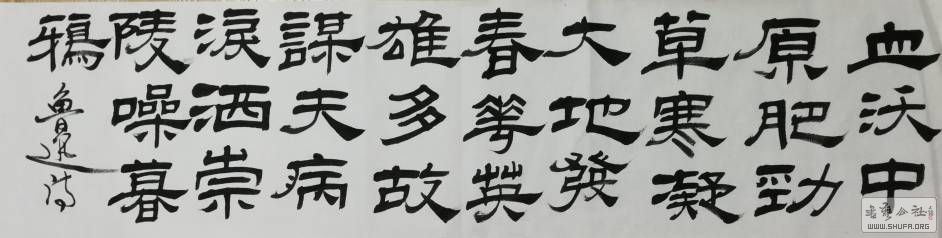 血沃中
原肥勁
草寒凝
大地發
春華英
雄多故
謀夫病
淚洒崇
陵噪暮
鴉
魯迅诗
書藝公社
WWW.SHUFA.ORG